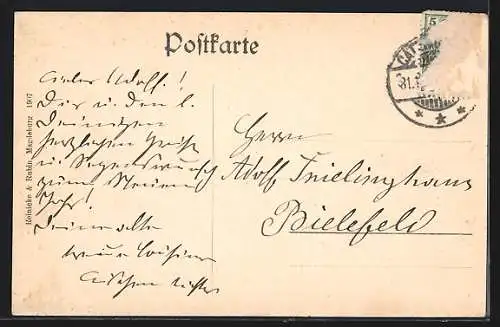 Postkarte
5
CAT
31.
Lieber Adolf!
Dir u. den l.
Deinigen
herzlichen Gruß
u. Segenswunsch
zum Neuen
Jahr!
Deine alte
treue Cousine
Herrn
Adolf Frielinghaus
Bielefeld
Reinicke & Rubin, Magdeburg 1907